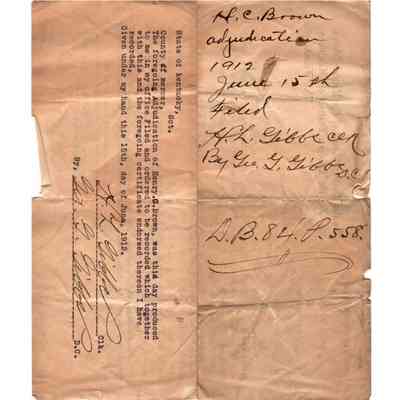 State of Kentucky,
Sct.
County of Mercer,
The foregoing Adjudication of Henry.C.Brown, was this day produced
to me in my office Filed and ordered to be recorded which together
with this and the foregoing certificate endorsed thereon I have
recorded.
Given under my hand this 15th, day of June, 1912.
H. L. Gibbs Clk.
By, Geo. T. Gibbs D.C.
H. C. Brown
adjudication
1912
June 15th
Filed
H. L. Gibbs CLK
By Geo. T. Gibbs D.C.
D. B. 84. P. 558.